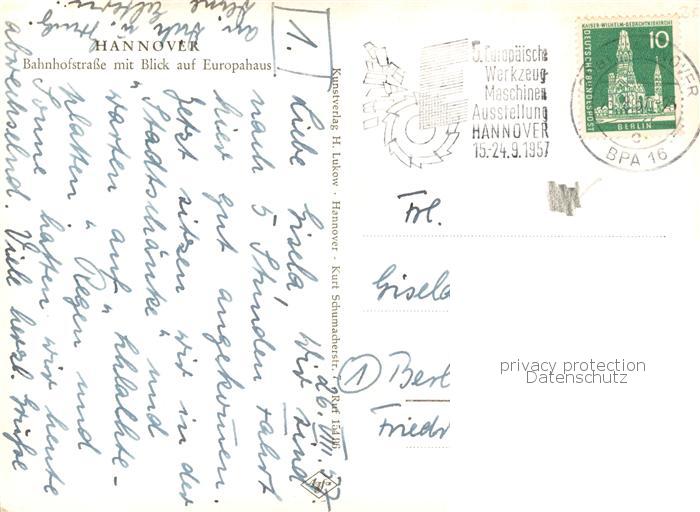 HANNOVER
Bahnhofstraße mit Blick auf Europahaus
1.
Liebe Gisela, Wir sind
nach 5 Stunden Fahrt
hier gut angekommen.
Jetzt sitzen wir in der
"Stadtschänke" und
warten auf "Schlachte-
platten". Regen und
Sonne hatten wir heute
abwechselnd. Viele herzl. Grüße
an Dich u.
Deine Eltern.
Kunstverlag H. Lukow · Hannover - Kurt Schumacherstr. · Ruf
Agfa
5. Europäische
Werkzeug-
Maschinen
Ausstellung
HANNOVER
15.-24.9.1957
KAISER-WILHELM-GEDÄCHTNISKIRCHE
DEUTSCHE BUNDESPOST
10
BERLIN
HANNOVER
BPA 16
Frl.
Gisela
1 Berl
Friedr
privacy protection
Datenschutz